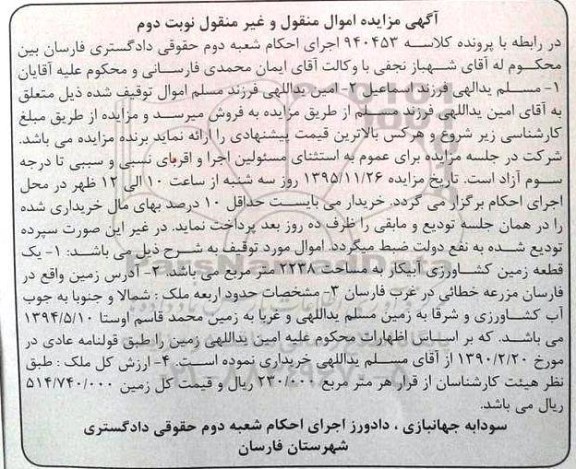 آگهی مزایده اموال منقول و غیر منقول نوبت دوم
در رابطه با پرونده کلاسه ۹۴۰۴۵۳ اجرای احکام شعبه دوم حقوقی دادگستری فارسان بین
محکوم له آقای شهباز نجفی با وکالت آقای ایمان محمدی فارسانی و محکوم علیه آقایان
۱- مسلم یدالهی فرزند اسماعیل ۲- امین یداللهی فرزند مسلم اموال توقیف شده ذیل متعلق
به آقای امین یداللهی فرزند مسلم از طریق مزایده به فروش میرسد و مزایده از طریق مبلغ
کارشناسی زیر شروع و هرکس بالاترین قیمت پیشنهادی را ارائه نماید برنده مزایده می باشد.
شرکت در جلسه مزایده برای عموم به استثنای مسئولین اجرا و اقربای نسبی و سببی تا درجه
سوم آزاد است. تاریخ مزایده ۱۳۹۵/۱۱/۲۶ روز سه شنبه از ساعت ۱۰ الی ۱۲ ظهر در محل
اجرای احکام برگزار می گردد. خریدار می بایست حداقل ۱۰ درصد بهای مال خریداری شده
را در همان جلسه تودیع و مابقی را ظرف ده روز بعد پرداخت نماید. در غیر این صورت سپرده
تودیع شده به نفع دولت ضبط میگردد. اموال مورد توقیف به شرح ذیل می باشد: ۱- یک
قطعه زمین کشاورزی آبیکار به مساحت ۲۲۳۸ متر مربع می باشد. ۲- آدرس زمین واقع در
فارسان مزرعه خطائی در غرب فارسان ۳- مشخصات حدود اربعه ملک : شمالا و جنوبا به جوب
آب کشاورزی و شرقا به زمین مسلم یداللهی و غربا به زمین محمد قاسم اوستا ۱۳۹۴/۵/۱۰
می باشد. که بر اساس اظهارات محکوم علیه امین یداللهی زمین را طبق قولنامه عادی در
مورخ ۱۳۹۰/۲/۲۰ از آقای مسلم یداللهی خریداری نموده است. ۴- ارزش کل ملک : طبق
نظر هیئت کارشناسان از قرار هر متر مربع ۲۳۰/۰۰۰ ریال و قیمت کل زمین ۵۱۴/۷۴۰/۰۰۰
ریال می باشد.
سودابه جهانبازی ، دادورز اجرای احکام شعبه دوم حقوقی دادگستری
شهرستان فارسان